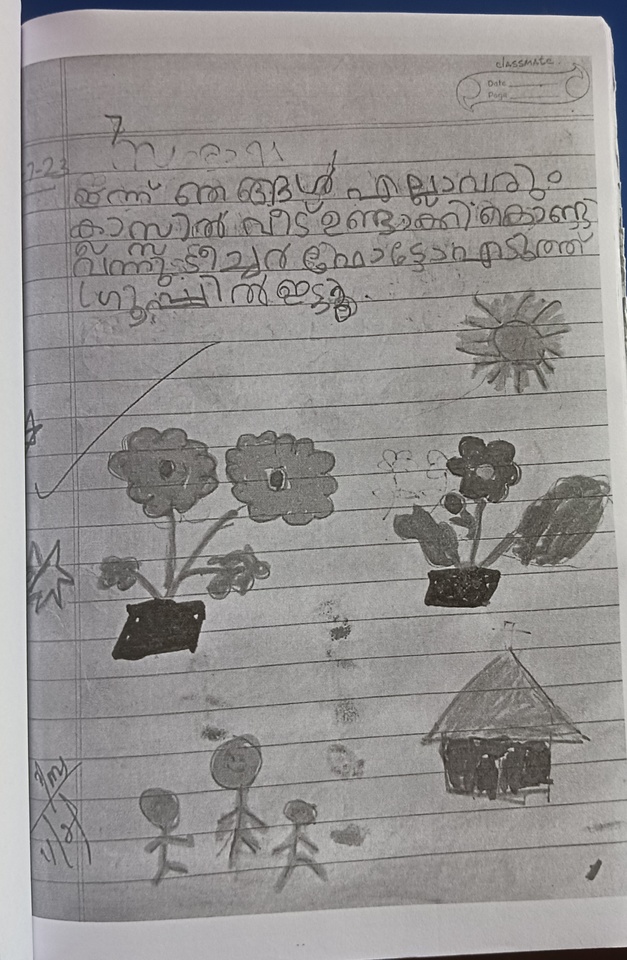 classmate
Date
Page
7
7-23
ഇന്ന് ഞങ്ങൾ എല്ലാവരും
കാസിൽ വീട് ഉണ്ടാക്കി കൊണ്ടു
വന്നു. ടീച്ചർ ഫോട്ടോ എടുത്ത്
ഗ്രൂപ്പിൽ ഇട്ടു.